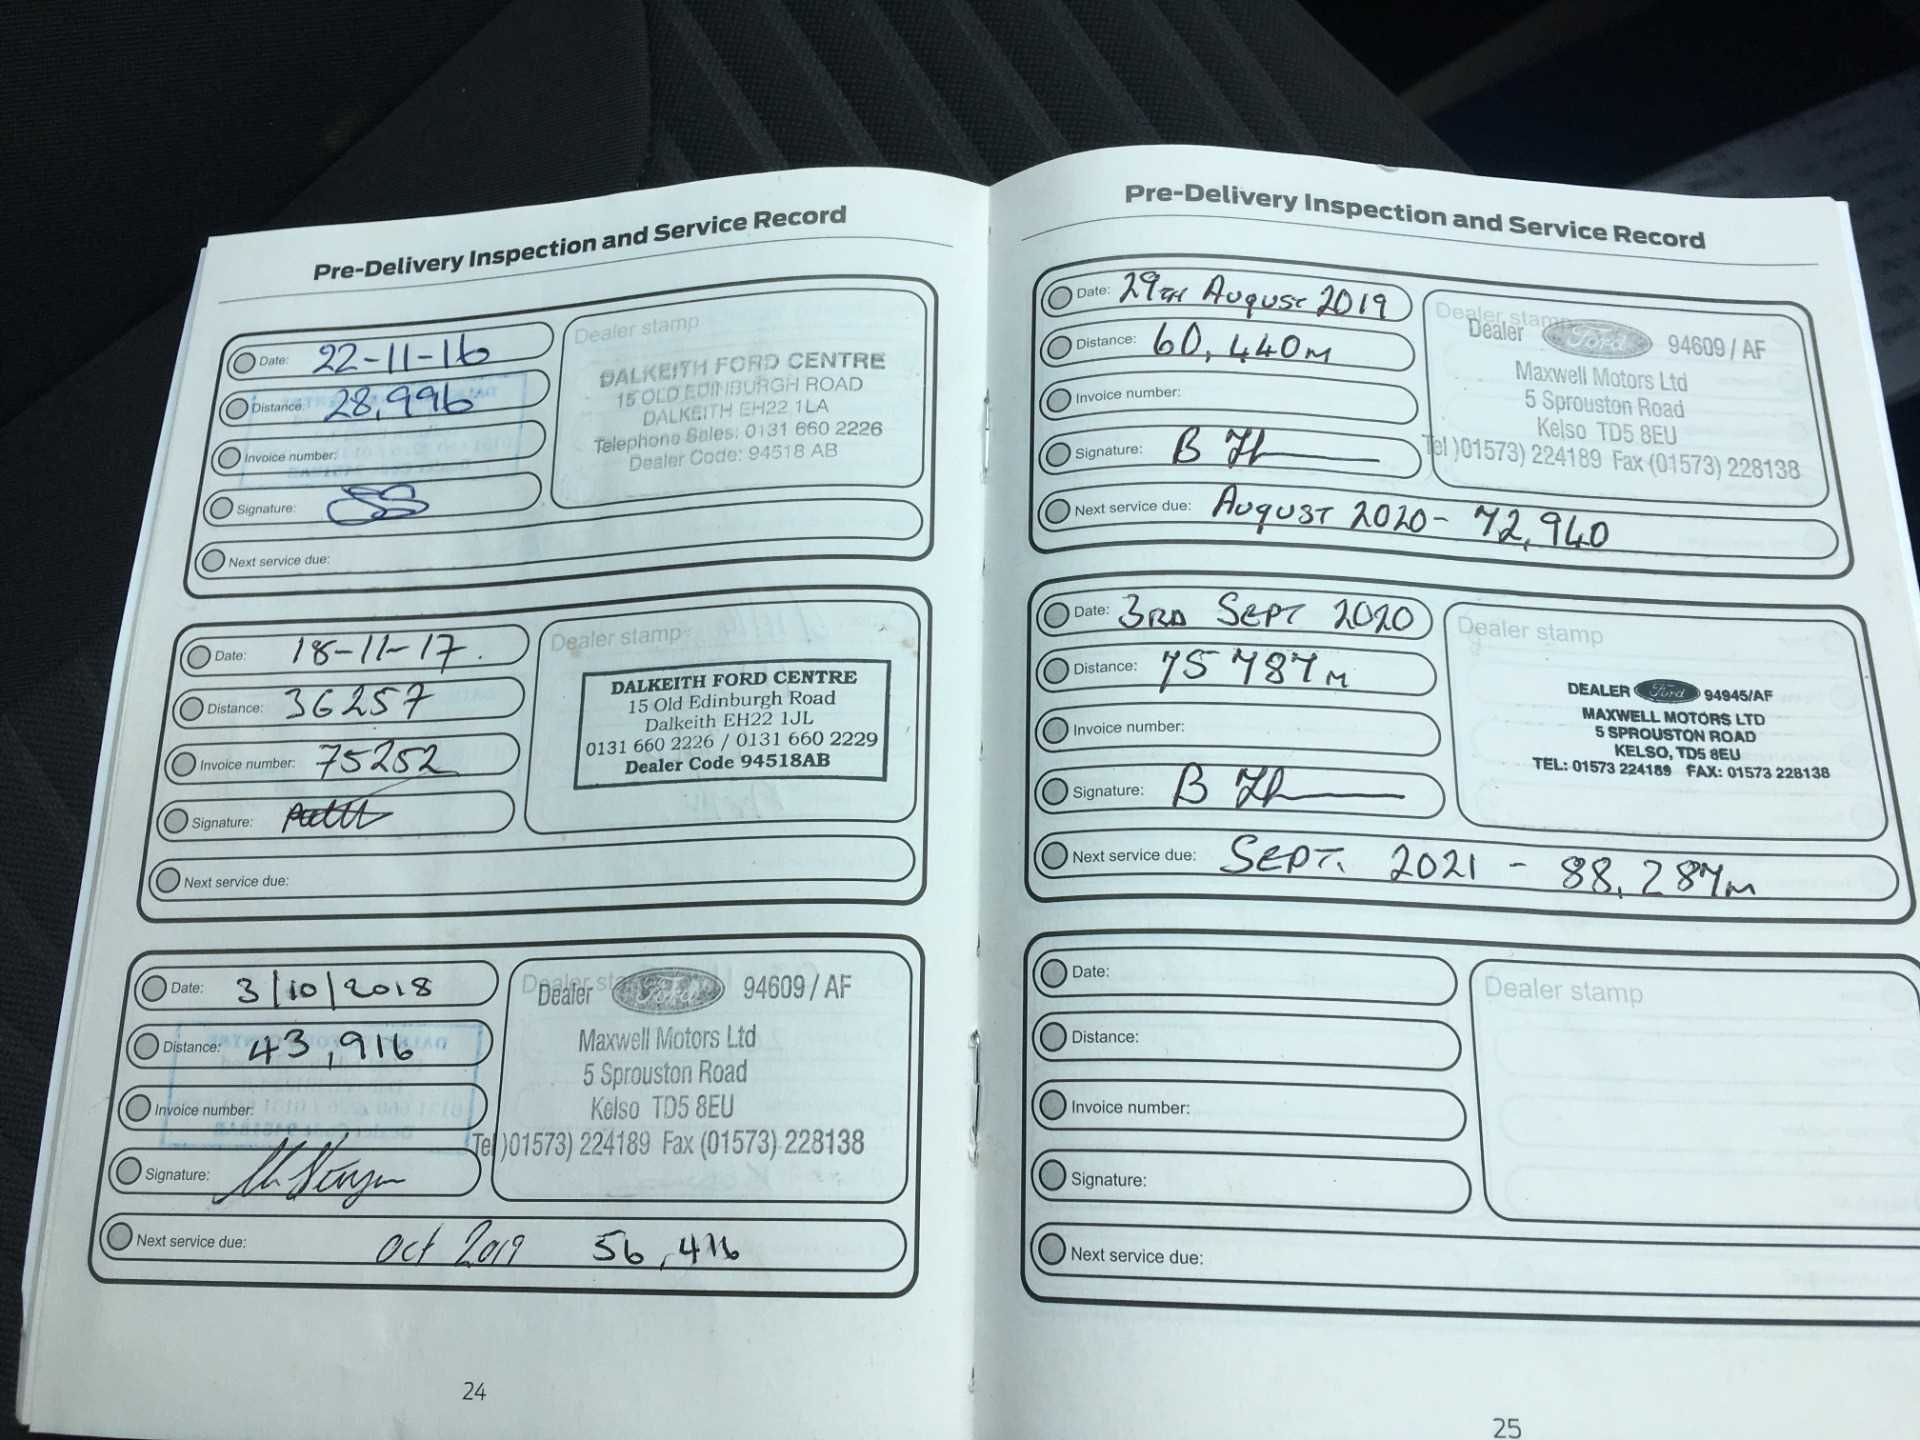 Pre-Delivery Inspection and Service Record
Date: 22-11-16
Distance: 28,996
Invoice number:
Signature:
Next service due:
Dealer stamp
DALKEITH FORD CENTRE
15 OLD EDINBURGH ROAD
DALKEITH EH22 1LA
Telephone Sales: 0131 660 2226
Dealer Code: 94518 AB
Date: 18-11-17.
Distance: 36257
Invoice number: 75252
Signature:
Next service due:
Dealer stamp
DALKEITH FORD CENTRE
15 Old Edinburgh Road
Dalkeith EH22 1JL
0131 660 2226 / 0131 660 2229
Dealer Code 94518AB
Date: 3/10/2018
Distance: 43,916
Invoice number:
Signature:
Next service due: Oct 2019 56,416
Dealer stamp
Dealer Ford 94609 / AF
Maxwell Motors Ltd
5 Sprouston Road
Kelso TD5 8EU
Tel )01573) 224189 Fax (01573) 228138
24
Pre-Delivery Inspection and Service Record
Date: 29TH AUGUST 2019
Distance: 60,440M
Invoice number:
Signature: B
Next service due: AUGUST 2020 - 72,940
Dealer stamp
Dealer Ford 94609 / AF
Maxwell Motors Ltd
5 Sprouston Road
Kelso TD5 8EU
Tel )01573) 224189 Fax (01573) 228138
Date: 3RD SEPT 2020
Distance: 75 787M
Invoice number:
Signature: B
Next service due: SEPT. 2021 - 88,287M
Dealer stamp
DEALER Ford 94945/AF
MAXWELL MOTORS LTD
5 SPROUSTON ROAD
KELSO, TD5 8EU
TEL: 01573 224189 FAX: 01573 228138
Date:
Distance:
Invoice number:
Signature:
Next service due:
Dealer stamp
25